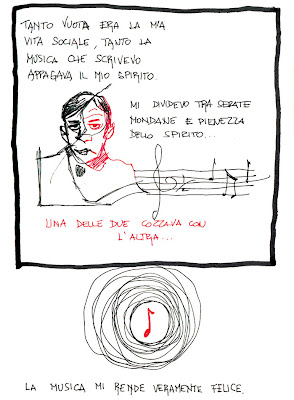 TANTO VUOTA ERA LA MIA
VITA SOCIALE, TANTO LA
MUSICA CHE SCRIVEVO
APPAGAVA IL MIO SPIRITO.
MI DIVIDEVO TRA SERATE
MONDANE E PIENEZZA
DELLO SPIRITO...
UNA DELLE DUE COZZAVA CON
L'ALTRA...
LA MUSICA MI RENDE VERAMENTE FELICE.